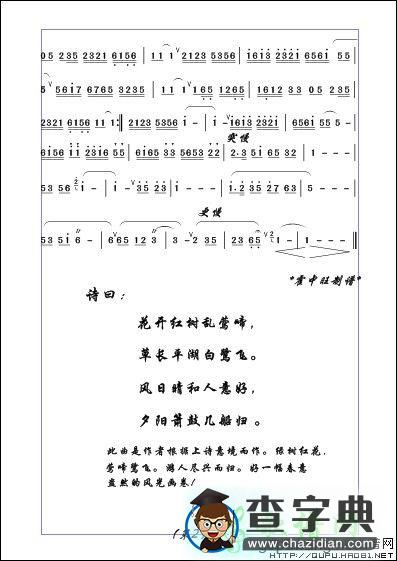 05 235 2321 6156 | 11 1 2123 5356 | i6i3 2321 656i 55
5 56i7 6765 3235 | 11 1 165 1265 | 1612 33 05 235
2321 6156 11 1 :‖ 2123 5356 | i - i i6i3 2321 | 656i 55 5 -
突慢
6i56 i i 23i6 55 | 6i65 33 5653 22 | 2.3 5i 65 32 | 1 - - -
53 56 i - | i - 35 23 | i - - - | i.2 35 27 63 | 5 - - -
更慢
53 5i 6 - | 665 123 | 3 - 2 35 | 23 65 1 - | 1 - - ‖
"霍中旺制谱"
诗曰:
花开红树乱莺啼,
草长平湖白鹭飞。
风日晴和人意好,
夕阳箫鼓几船归。
此曲是作者根据上诗意境而作。绿树红花,
莺啼鹭飞。游人尽兴而归。好一幅春意
盎然的风光画卷!
(第2
查字典
www.chazidian.com
HTTP://QUPU.HAO81.NET